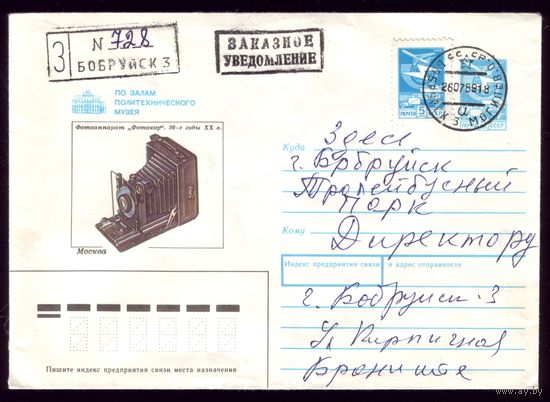 З № 728
БОБРУЙСК 3
ЗАКАЗНОЕ
УВЕДОМЛЕНИЕ
ПО ЗАЛАМ
ПОЛИТЕХНИЧЕСКОГО
МУЗЕЯ
Фотоаппарат „Фотокор". 30-е годы XX в.
Москва
ПОЧТА 5
СССР
26078918
Куда Здесь
г. Бобруйск
Тролейбусный
Парк
Кому Директору
Индекс предприятия связи и адрес отправителя
г. Бобруйск-3
Ул Кирпичная
Пишите индекс предприятия связи места назначения
www.ay.by